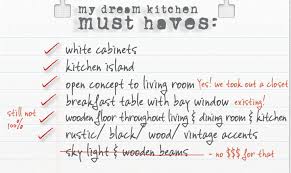 my dream kitchen
must haves:
white cabinets
kitchen island
open concept to living room Yes! we took out a closet
breakfast table with bay window existing!
still not 100% wooden floor throughout living & dining room & kitchen
rustic/ black/ wood/ vintage accents
sky light & wooden beams - no $$$ for that